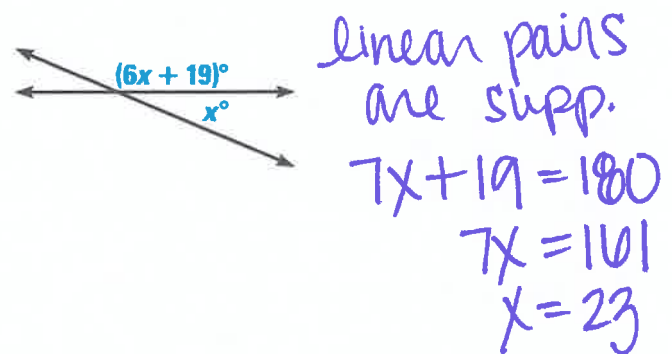 (6x + 19)°
x°
linear pairs
are supp.
7x+19=180
7x=161
x=23